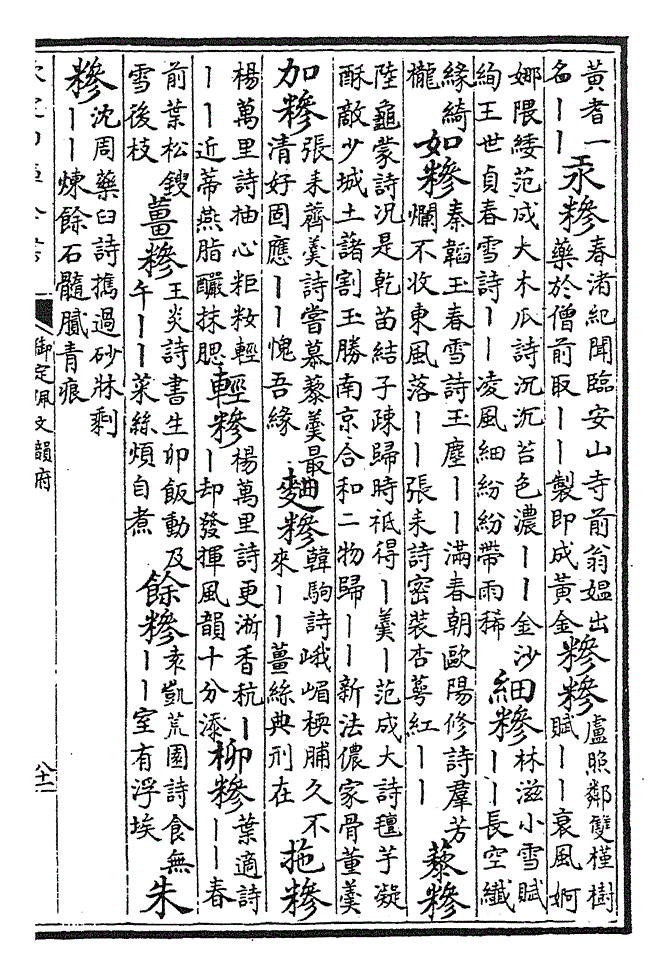 黃者一
名丨丨
汞糝
春渚紀聞臨安山寺前翁媪出
藥於僧前取丨丨製即成黃金
糝糝
盧照鄰雙槿樹
賦丨丨衰風婀
娜隈緌范成大木瓜詩沉沉苔色濃丨丨金沙
絢王世貞春雪詩丨丨凌風細紛紛帶雨稀
細糝
林滋小雪賦
丨丨長空纖
緣綺
櫳
如糝
秦韜玉春雪詩玉塵丨丨滿春朝歐陽修詩羣芳
爛不收東風落丨丨張耒詩密装杏萼紅丨丨
藜糝
陸龜蒙詩況是乾苗結子疎歸時祗得丨羹丨范成大詩氊芋凝
酥敵少城土藷割玉勝南京合和二物歸丨丨新法儂家骨董羹
加糝
張耒薺羹詩嘗慕藜羹最
清好固應丨丨愧吾緣
麪糝
韓駒詩峨嵋楩脯久不
來丨丨薑絲典刑在
拖糝
楊萬里詩抽心粔籹輕
丨丨近蒂燕脂釅抹腮
輕糝
楊萬里詩更淅香秔丨
丨却發揮風韻十分添
柳糝
葉適詩
丨丨春
前葉松鎪
雪後枝
薑糝
王炎詩書生卯飯動及
午丨丨菜絲煩自煮
餘糝
袁凱荒園詩食無
丨丨室有浮埃
朱
糝
沈周藥臼詩擣過砂牀剩
丨丨煉餘石髓膩青痕
御定佩文韻府